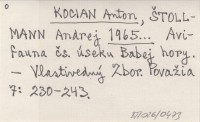 0
KOCIAN Anton, ŠTOLL-
MANN Andrej 1965... Avi-
fauna čs. úseku Babej hory.
- Vlastivedný Zbor. Považia
7: 230-243.